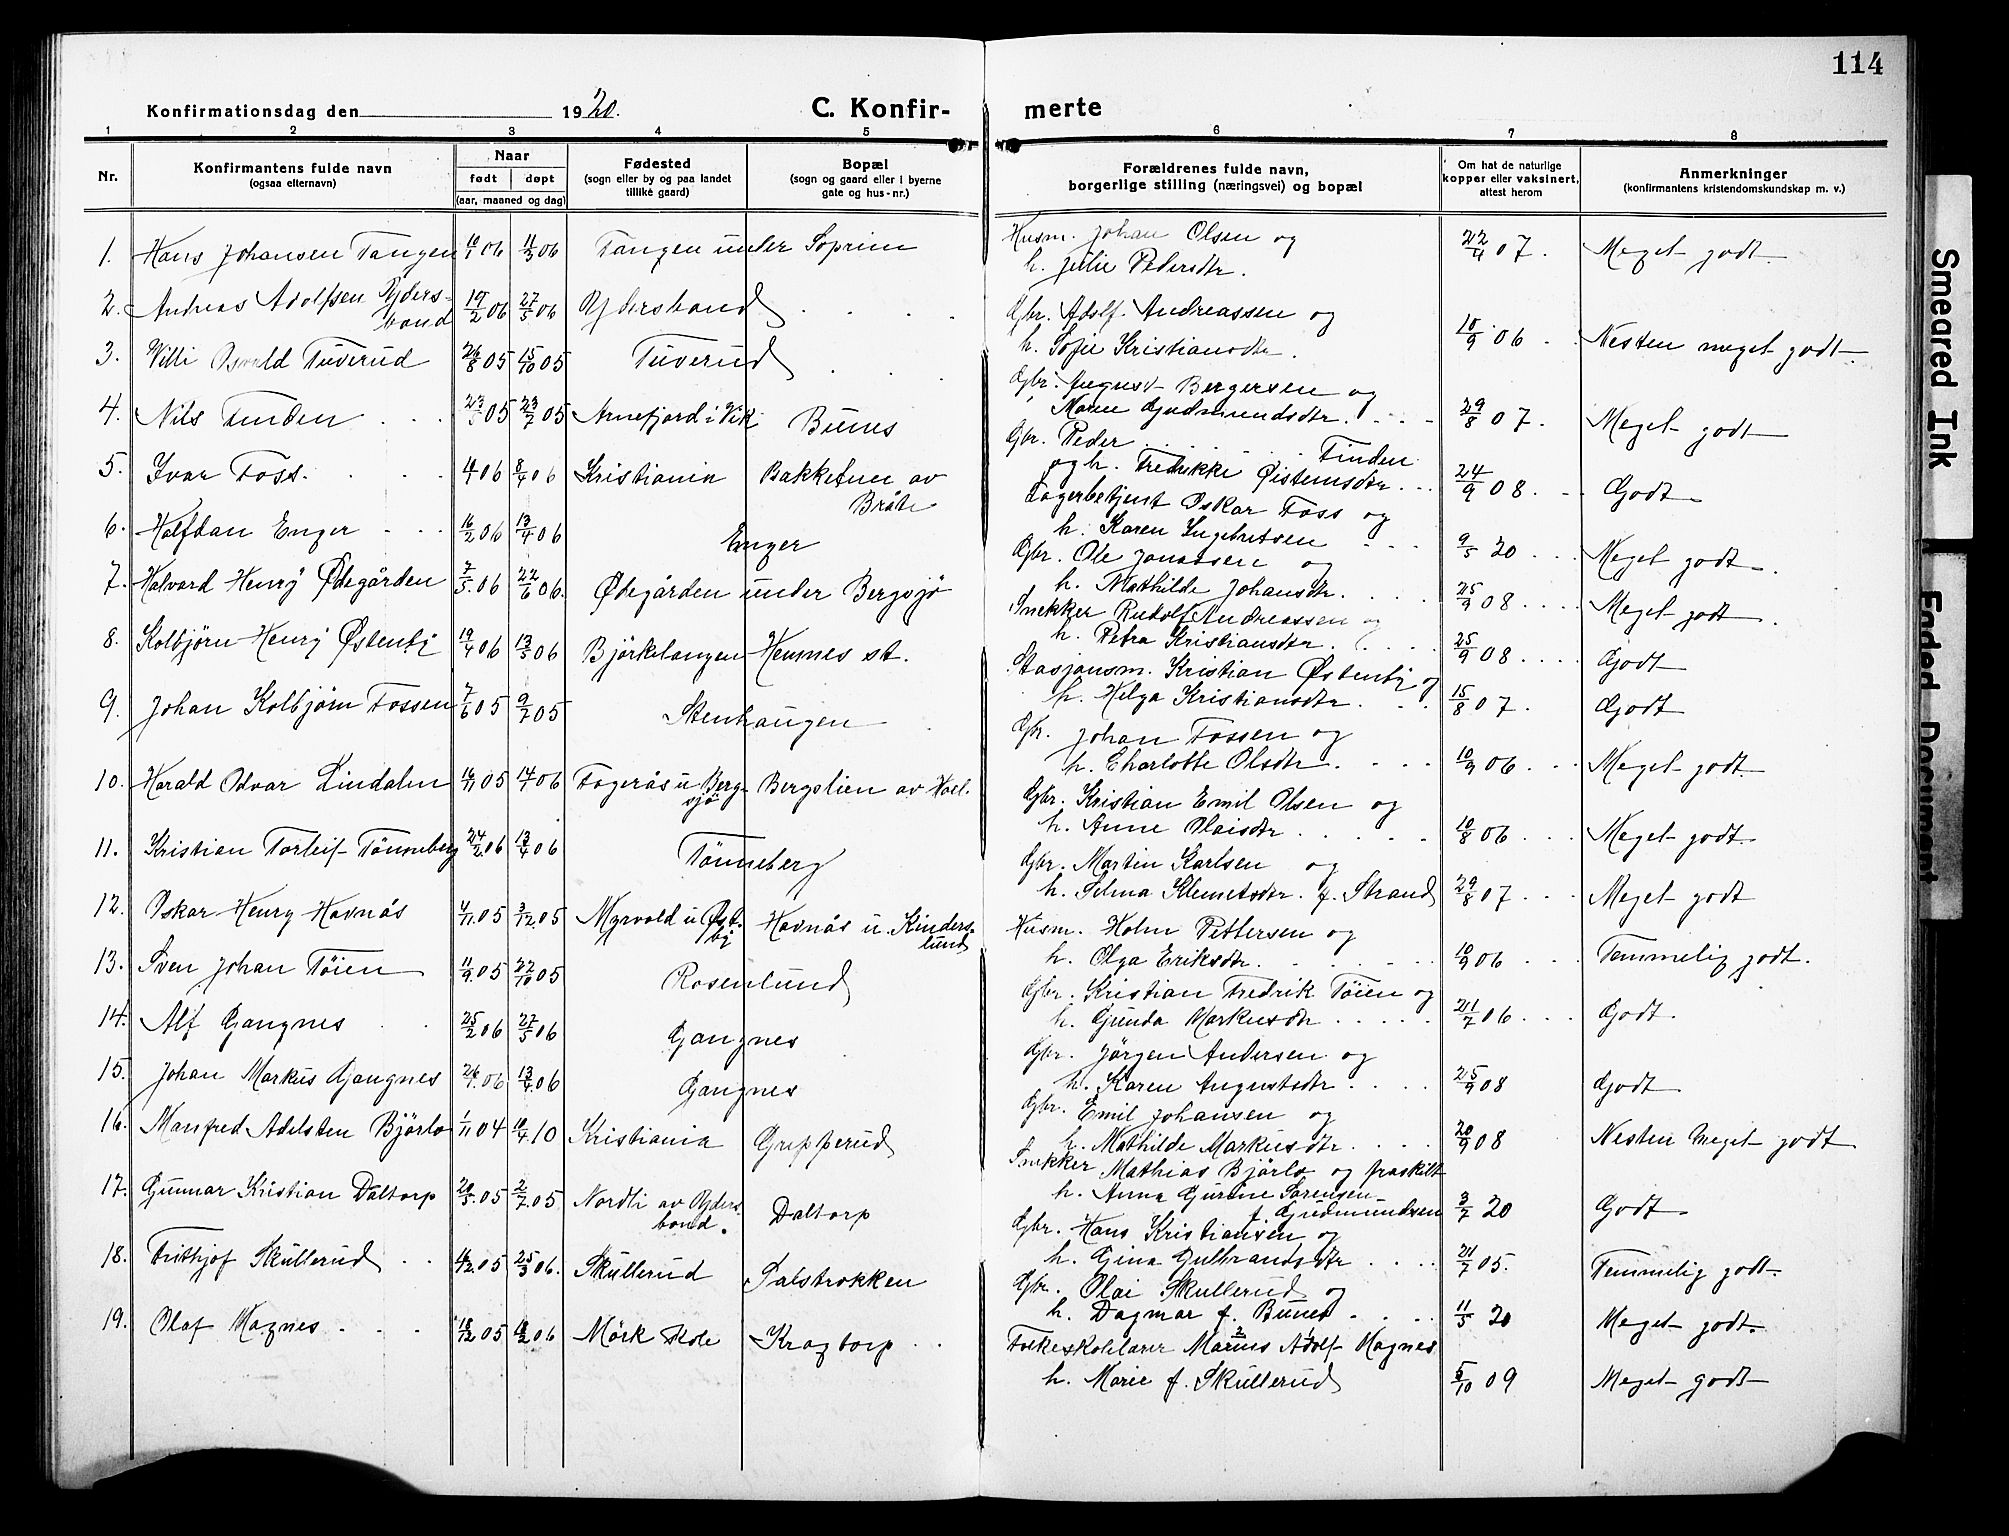 114
Konfirmationsdag den 1920.
C. Konfirmerte
1 2 3 4 5 6 7 8
Nr.
Konfirmantens fulde navn
(ogsaa efternavn)
Naar
født døpt
(aar, maaned og dag)
Fødested
(sogn eller by og paa landet
tillike gaard)
Bopæl
(sogn og gaard eller i byerne
gate og hus-nr.)
Forældrenes fulde navn,
borgerlige stilling (næringsvei) og bopæl
Om hat de naturlige
kopper eller vaksinert,
attest herom
Anmerkninger
(konfirmantens kristendomskundskap m. v.)
1. Hans Johansen Tangen 10/1 06 11/3 06 Tangen under Soprim
Husm. Johan Olsen og
h. Julie Pedersdtr. 22/4 07. Meget godt
2. Andreas Adolfsen Gjders-
bond 19/2 06 27/5 06 Gjdersbond
Gbr. Adolf Andreassen og
h. Sofie Kristiansdtr. 10/9 06 Nesten meget godt
3. Villi Osvald Tuverud 26/8 05 15/10 05 Tuverud
Gbr. August Bergersen og
Maren Gudmundsdtr. 29/8 07. Meget godt
4. Nils Finden 05 23/7 05 Arnefjord i Vik Bunes
Gbr. Peder Finden
og h. Fredrikke Øistensdtr. 24/9 08. Godt
5. Ivar Foss. 06 8/4 06 Kristiania Bakketun av
Bråte
Lagerbetjent Oskar Foss og
h. Karen Ingebretsen 9/5 20 Meget godt.
6. Halfdan Enger 16/2 06 13/4 06 Enger
Gbr. Ole Jonassen og
h. Mathilde Johansdtr. 25/9 08 Meget godt.
7. Halvard Henry Ødegården 7/5 06 22/6 06. Ødegården under Bergsjø
Snekker Rudolf Andreassen og
h. Petra Kristiansdtr. 25/9 08 Godt
8. Kolbjörn Henry Østenby 19/4 06 13/5 06 Bjørkelangen Hemnes st.
Stasjonsm. Kristian Østenby og
h. Helga Kristiansdtr. 15/8 07. Godt
9. Johan Kolbjørn Fossen 7/6 05 9/7 05 Stenhaugen
Gbr. Johan Fossen og
h. Charlotte Olsdtr. 10/9 06 Meget godt.
10. Harald Odvar Lindalen 16/11 05 14/1 06 Fagerås u Berg-
sjø Bergslien av Hoel.
Gbr. Kristian Emil Olsen og
h. Anne Olaisdtr. 10/8 06 Meget godt.
11. Kristian Torleif Tönneberg 24/2 06 13/4 06 Tönneberg
Gbr. Martin Karlsen og
h. Selma Klemetsdtr. f. Strand 29/8 07 Meget godt
12. Oskar Henry Havnås 4/11 05 3/12 05 Myrvold u Øst-
by Havnås u. Kinders-
lund
Husm. Holm Pettersen og
h. Olga Eriksdtr. 10/9 06 Temmelig godt.
13. Sven Johan Töien 11/9 05 22/10 05 Rosenlund
Gbr. Kristian Fredrik Töien og
h. Gunda Markusdtr. 21/7 06 Godt.
14. Alf Gangnes 25/2 06 27/5 06 Gangnes
Gbr. Jørgen Andersen og
h. Karen Augustsdtr. 25/9 08 Godt
15. Johan Markus Gangnes 26/1 06 13/4 06 Gangnes
Gbr. Emil Johansen og
h. Mathilde Markusdtr. 20/9 08 Nesten meget godt
16. Manfred Adelsten Bjørlo 1/11 04 10/4 10 Kristiania Gripperud
Snekker Mathias Bjørlo og fraskilt
h. Anna Gurine Sørensen
f. Gudmundsen 3/7 20 Godt
17. Gunnar Kristian Daltorp 20/5 05 2/7 05 Nordli av Gjders-
bond. Daltorp
Gbr. Hans Kristiansen og
h. Gina Gulbrandsdtr 21/7 05. Temmelig godt.
18. Frithjof Skullerud 05 25/3 06. Skullerud Salstrokken
Gbr. Olai Skullerud og
h. Dagmar f. Bunes 11/5 20 Meget godt.
19. Olaf Magnes 18/12 05 06 Mörk skole Kragtorp
Folkeskolelærer Marius Adolf Magnes
h. Marie f. Skullerud 5/10 09 Meget godt
Smeared Ink
Faded Document